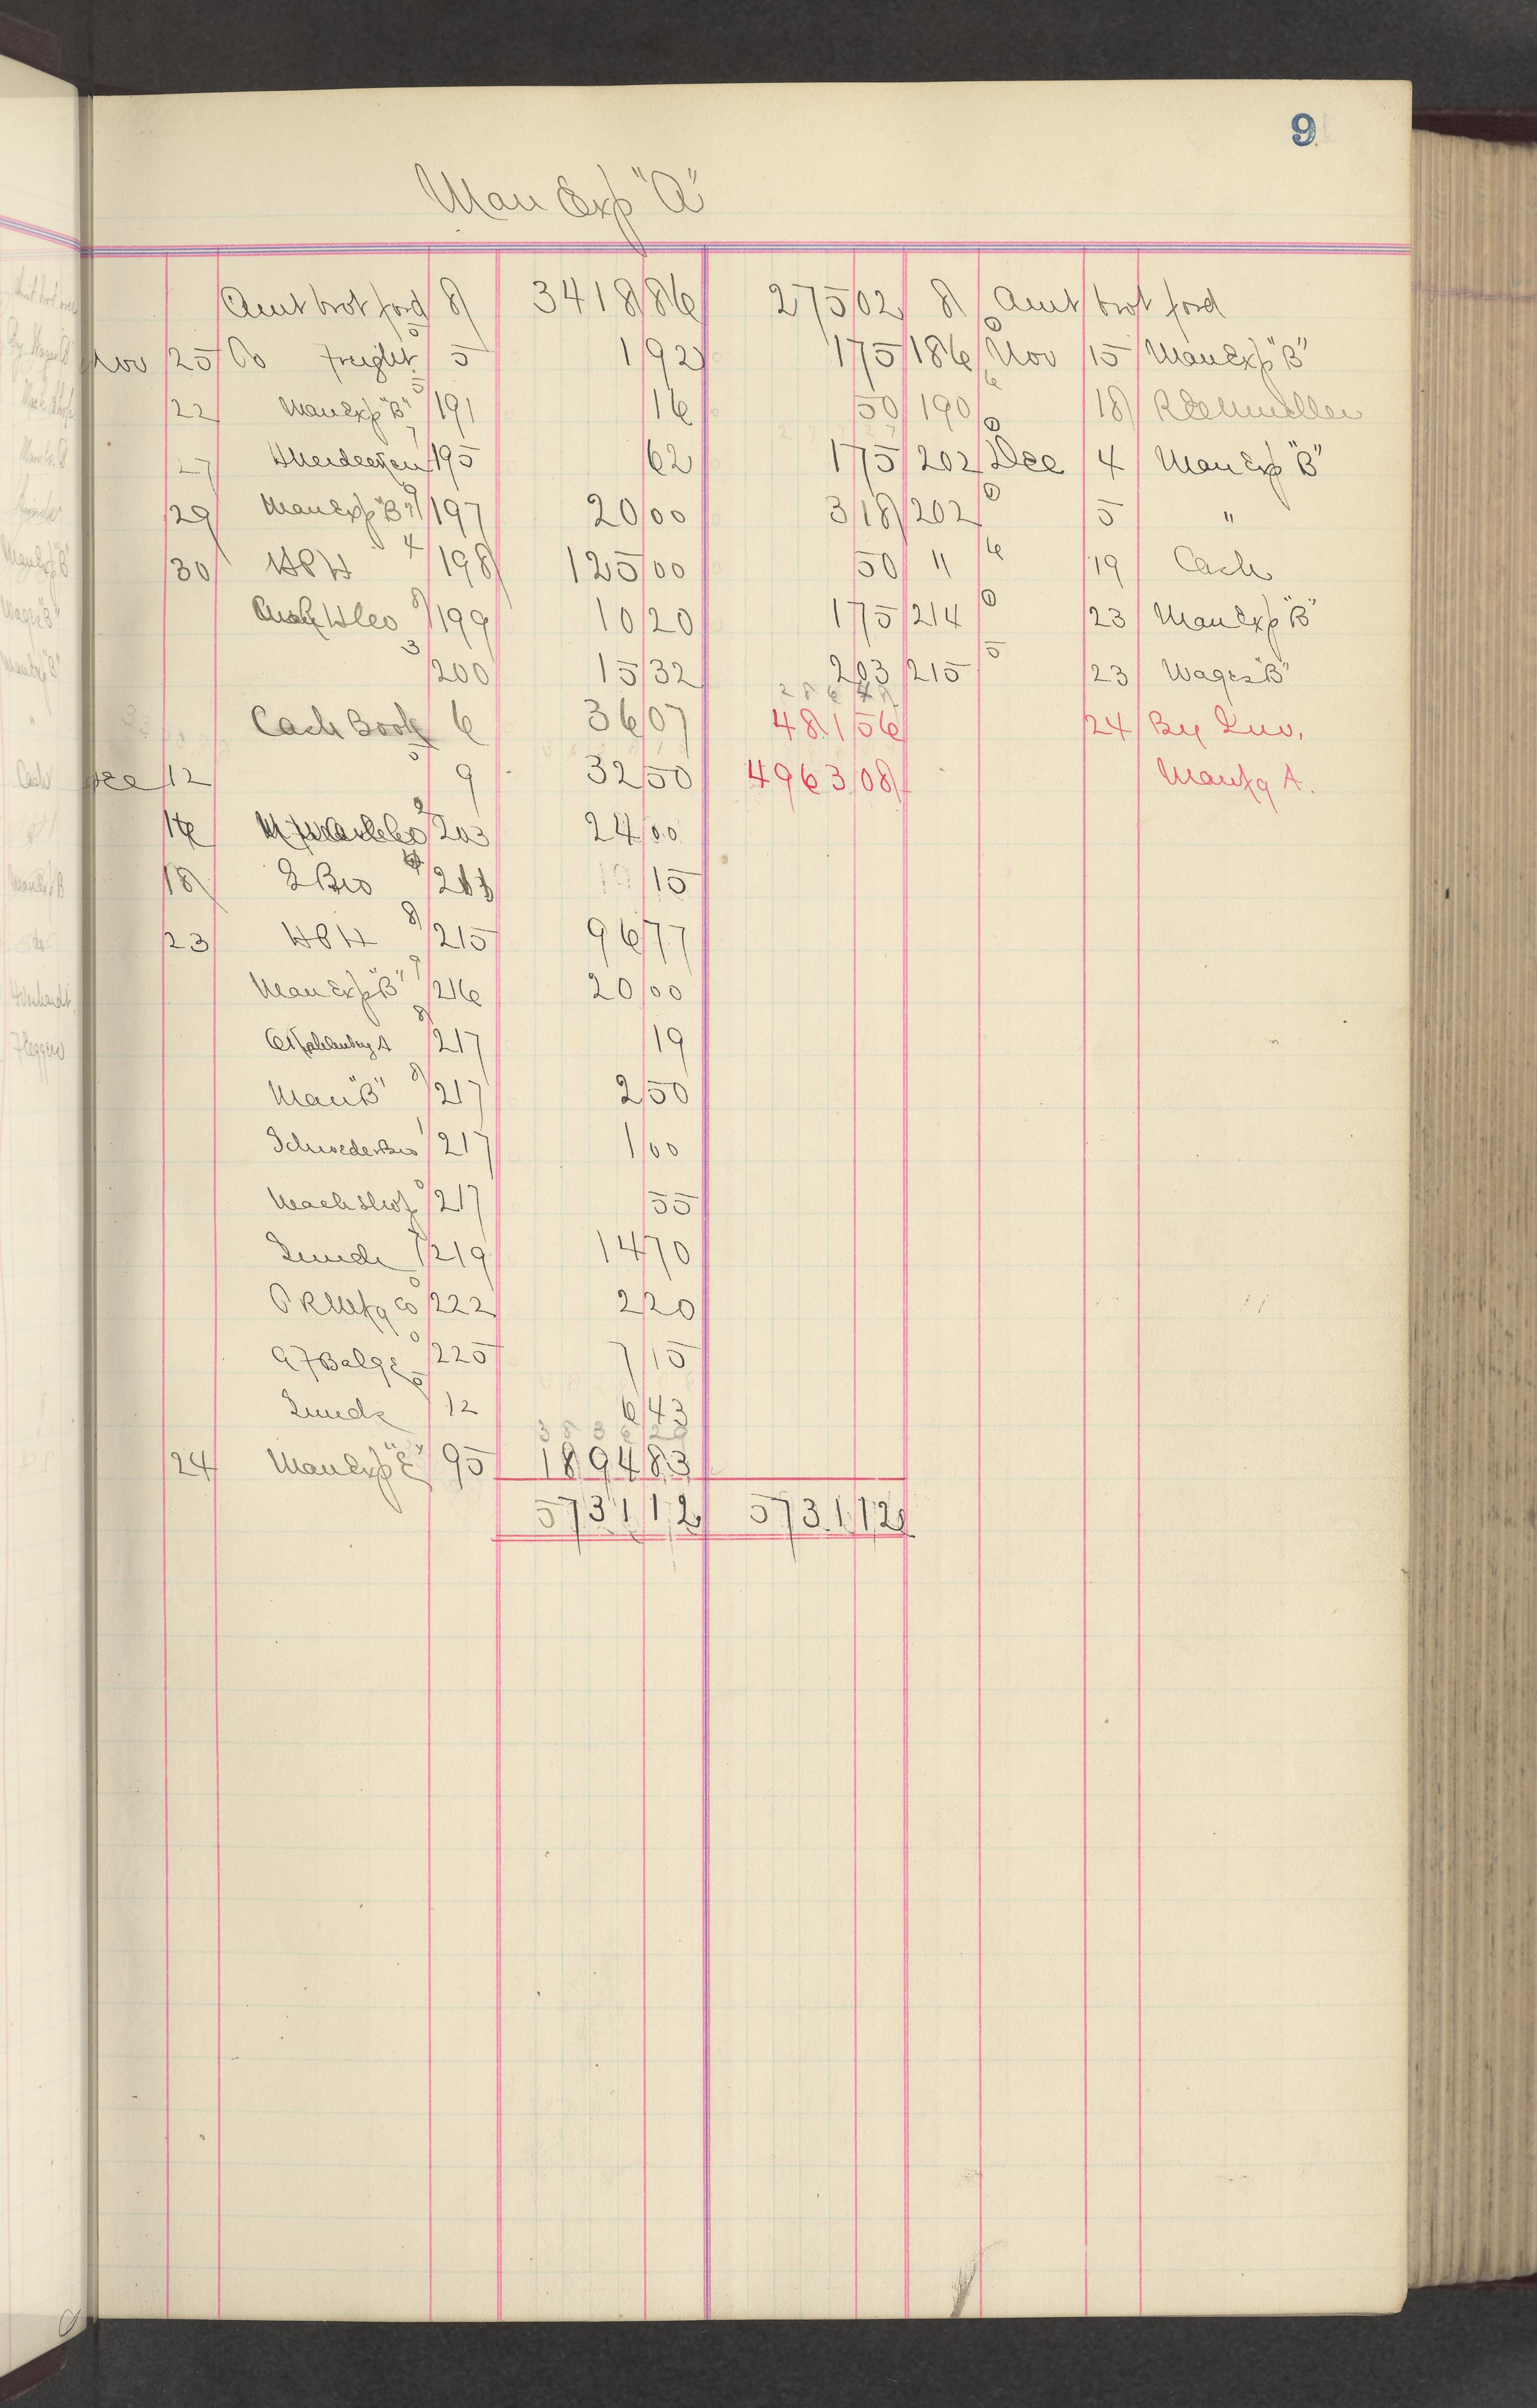 9
Man Exp "A"
Amt brot ford 8 3418 86 275 02 8 Amt brot ford
Nov 25 Co freight 5 1 92 1 75 186 Nov 15 Man Exp "B"
22 Man Exp "B" 191 16 50 190 18
27 195 62 1 75 202 Dec 4 Man Exp "B"
29 Man Exp "B" 197 20 00 3 18 202 5 "
30 H P H 198 125 00 50 " 19 Cash
199 10 20 1 75 214 23 Man Exp "B"
200 15 32 2 03 215 23 Wages "B"
286 48
Cash Book 6 36 07 481 56 24 By Inv.
Dec 12 9 32 50 4963 08 Manfg A.
16 203 24 00
18 Bro 15
23 H P H 215 96 77
Man Exp "B" 216 20 00
217 19
Man "B" 217 2 50
Schroeder Bro 217 1 00
Mach Shop 217 55
219 14 70
Mfg Co 222 2 20
225 7 15
12 6 43
3836 29
24 Man Exp "E" 95 1894 83
5731 12 5731 12